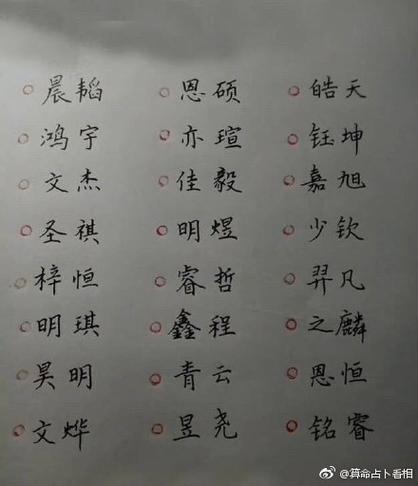 晨韬 恩硕 皓天
鸿宇 亦瑄 钰坤
文杰 佳毅 嘉旭
圣祺 明煜 少钦
梓恒 睿哲 羿凡
明琪 鑫程 之麟
昊明 青云 恩恒
文烨 昱尧 铭睿
@算命占卜看相